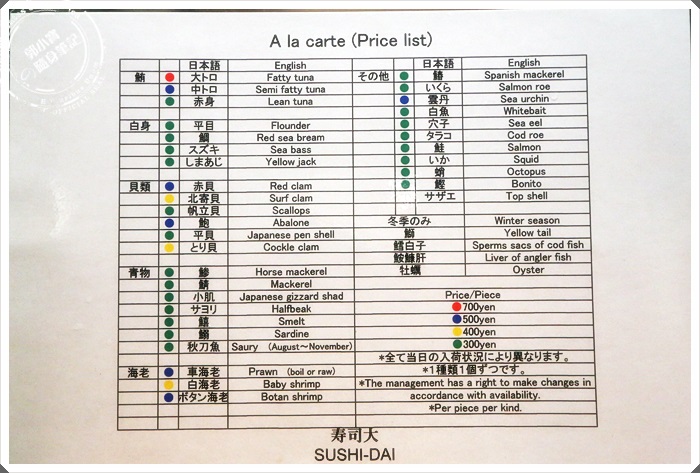 A la carte (Price list)
日本語 English
鮪 大トロ Fatty tuna
中トロ Semi fatty tuna
赤身 Lean tuna
白身 平目 Flounder
鯛 Red sea bream
スズキ Sea bass
しまあじ Yellow jack
貝類 赤貝 Red clam
北寄貝 Surf clam
帆立貝 Scallops
鮑 Abalone
平貝 Japanese pen shell
とり貝 Cockle clam
青物 鯵 Horse mackerel
鯖 Mackerel
小肌 Japanese gizzard shad
サヨリ Halfbeak
鱚 Smelt
鰯 Sardine
秋刀魚 Saury (August～November)
海老 車海老 Prawn (boil or raw)
白海老 Baby shrimp
ボタン海老 Botan shrimp
日本語 English
その他 鰆 Spanish mackerel
いくら Salmon roe
雲丹 Sea urchin
白魚 Whitebait
穴子 Sea eel
タラコ Cod roe
鮭 Salmon
いか Squid
蛸 Octopus
鰹 Bonito
サザエ Top shell
冬季のみ Winter season
鰤 Yellow tail
鱈白子 Sperms sacs of cod fish
鮟鱇肝 Liver of angler fish
牡蠣 Oyster
Price/Piece
700yen
500yen
400yen
300yen
*全て当日の入荷状況により異なります。
*1種類1個ずつです。
*The management has a right to make changes in
accordance with availability.
*Per piece per kind.
寿司大
SUSHI-DAI